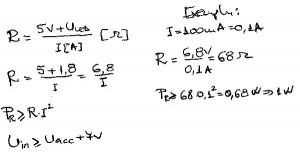 R = 5V + Uled / I[A] [Ω]
R = 5+1,8 / I = 6,8 / I
PR ≥ R·I²
Uin ≥ Uacc + 7V
Example:
I = 100mA = 0,1A
R = 6,8V / 0,1A = 68 Ω
PR ≥ 68 0,1² = 0,68 W ⇒ 1W